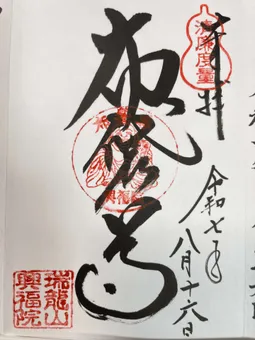 奉拝
清廉度量
令和七年
八月十六日
布袋尊
瑞龍山
興福院